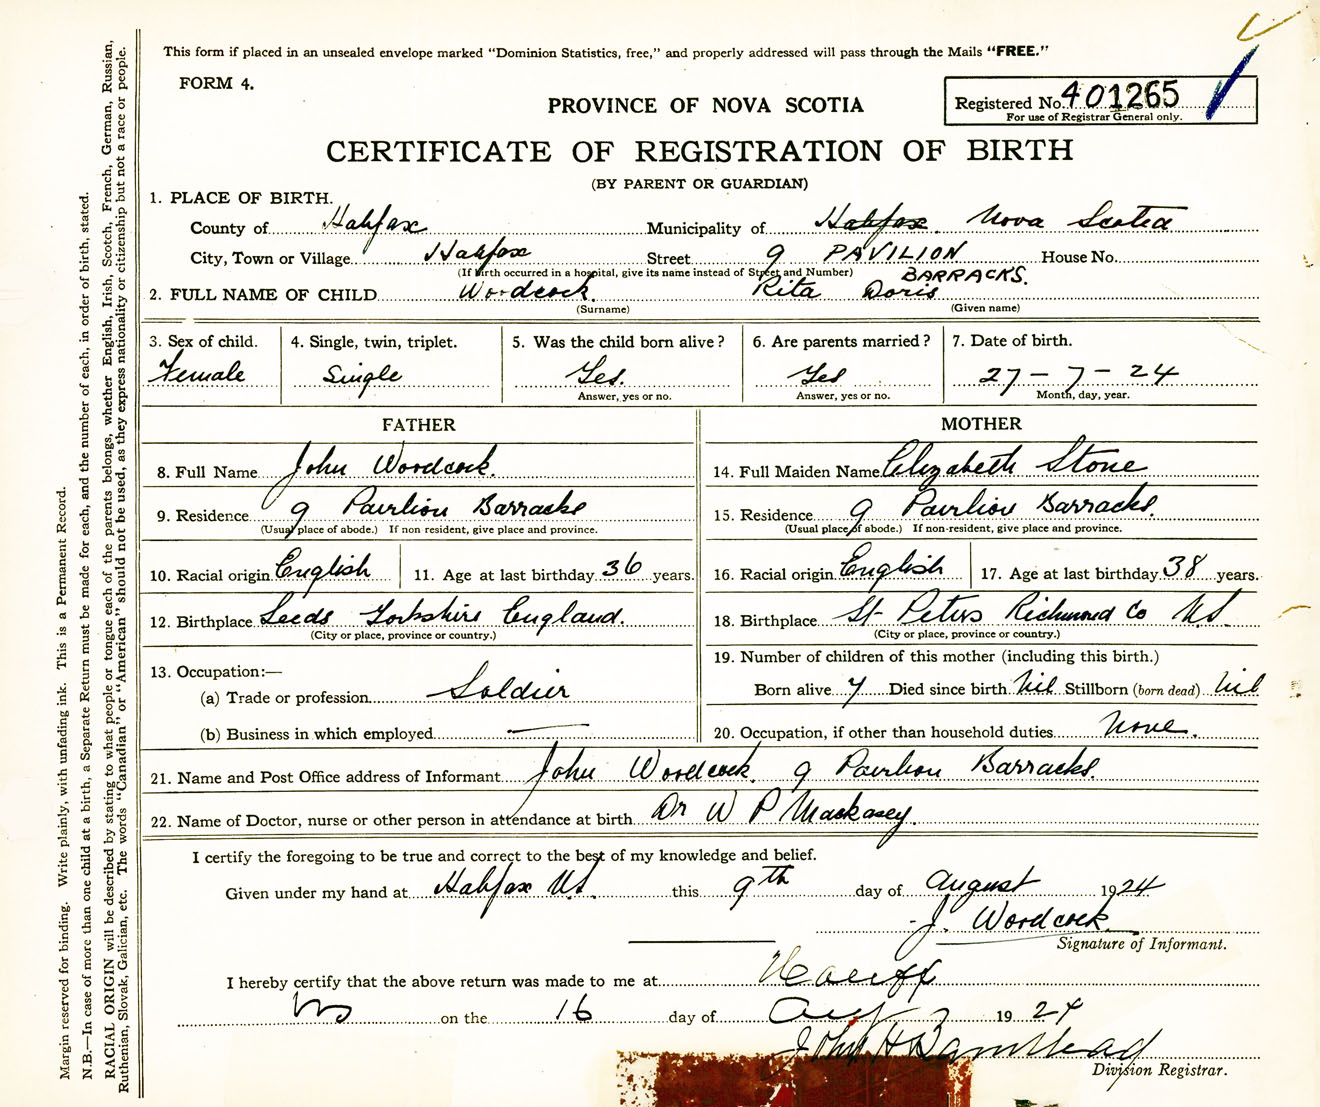 This form if placed in an unsealed envelope marked "Dominion Statistics, free," and properly addressed will pass through the Mails "FREE."
FORM 4.
Registered No. 401265
For use of Registrar General only.
PROVINCE OF NOVA SCOTIA
CERTIFICATE OF REGISTRATION OF BIRTH
(BY PARENT OR GUARDIAN)
1. PLACE OF BIRTH.
County of Halifax Municipality of Halifax Nova Scotia
City, Town or Village Halifax Street 9 PAVILION House No.
(If birth occurred in a hospital, give its name instead of Street and Number) BARRACKS.
2. FULL NAME OF CHILD Woodcock. Rita Doris
(Surname) (Given name)
3. Sex of child. 4. Single, twin, triplet. 5. Was the child born alive? 6. Are parents married? 7. Date of birth.
Female Single Yes. Yes 27-7-24
Answer, yes or no. Answer, yes or no. Month, day, year.
FATHER MOTHER
8. Full Name John Woodcock. 14. Full Maiden Name Elizabeth Stone
9. Residence 9 Pavilion Barracks 15. Residence 9 Pavilion Barracks.
(Usual place of abode.) If non resident, give place and province. (Usual place of abode.) If non-resident, give place and province.
10. Racial origin English 11. Age at last birthday 36 years. 16. Racial origin English 17. Age at last birthday 38 years.
12. Birthplace Leeds Yorkshire England. 18. Birthplace St Peters Richmond Co N.S.
(City or place, province or country.) (City or place, province or country.)
13. Occupation:— 19. Number of children of this mother (including this birth.)
(a) Trade or profession Soldier Born alive 7 Died since birth Nil Stillborn (born dead) Nil
(b) Business in which employed — 20. Occupation, if other than household duties None.
21. Name and Post Office address of Informant John Woodcock. 9 Pavilion Barracks.
22. Name of Doctor, nurse or other person in attendance at birth Dr W P Mackasey.
I certify the foregoing to be true and correct to the best of my knowledge and belief.
Given under my hand at Halifax N.S. this 9th day of August 1924
J. Woodcock.
Signature of Informant.
I hereby certify that the above return was made to me at
NS on the 16 day of Aug 1924
John H
Division Registrar.
Margin reserved for binding. Write plainly, with unfading ink. This is a Permanent Record.
N.B.—In case of more than one child at a birth, a Separate Return must be made for each, and the number of each, in order of birth, stated.
RACIAL ORIGIN will be described by stating to what people or tongue each of the parents belongs, whether English, Irish, Scotch, French, German, Russian,
Ruthenian, Slovak, Galician, etc. The words "Canadian" or "American" should not be used, as they express nationality or citizenship but not a race or people.